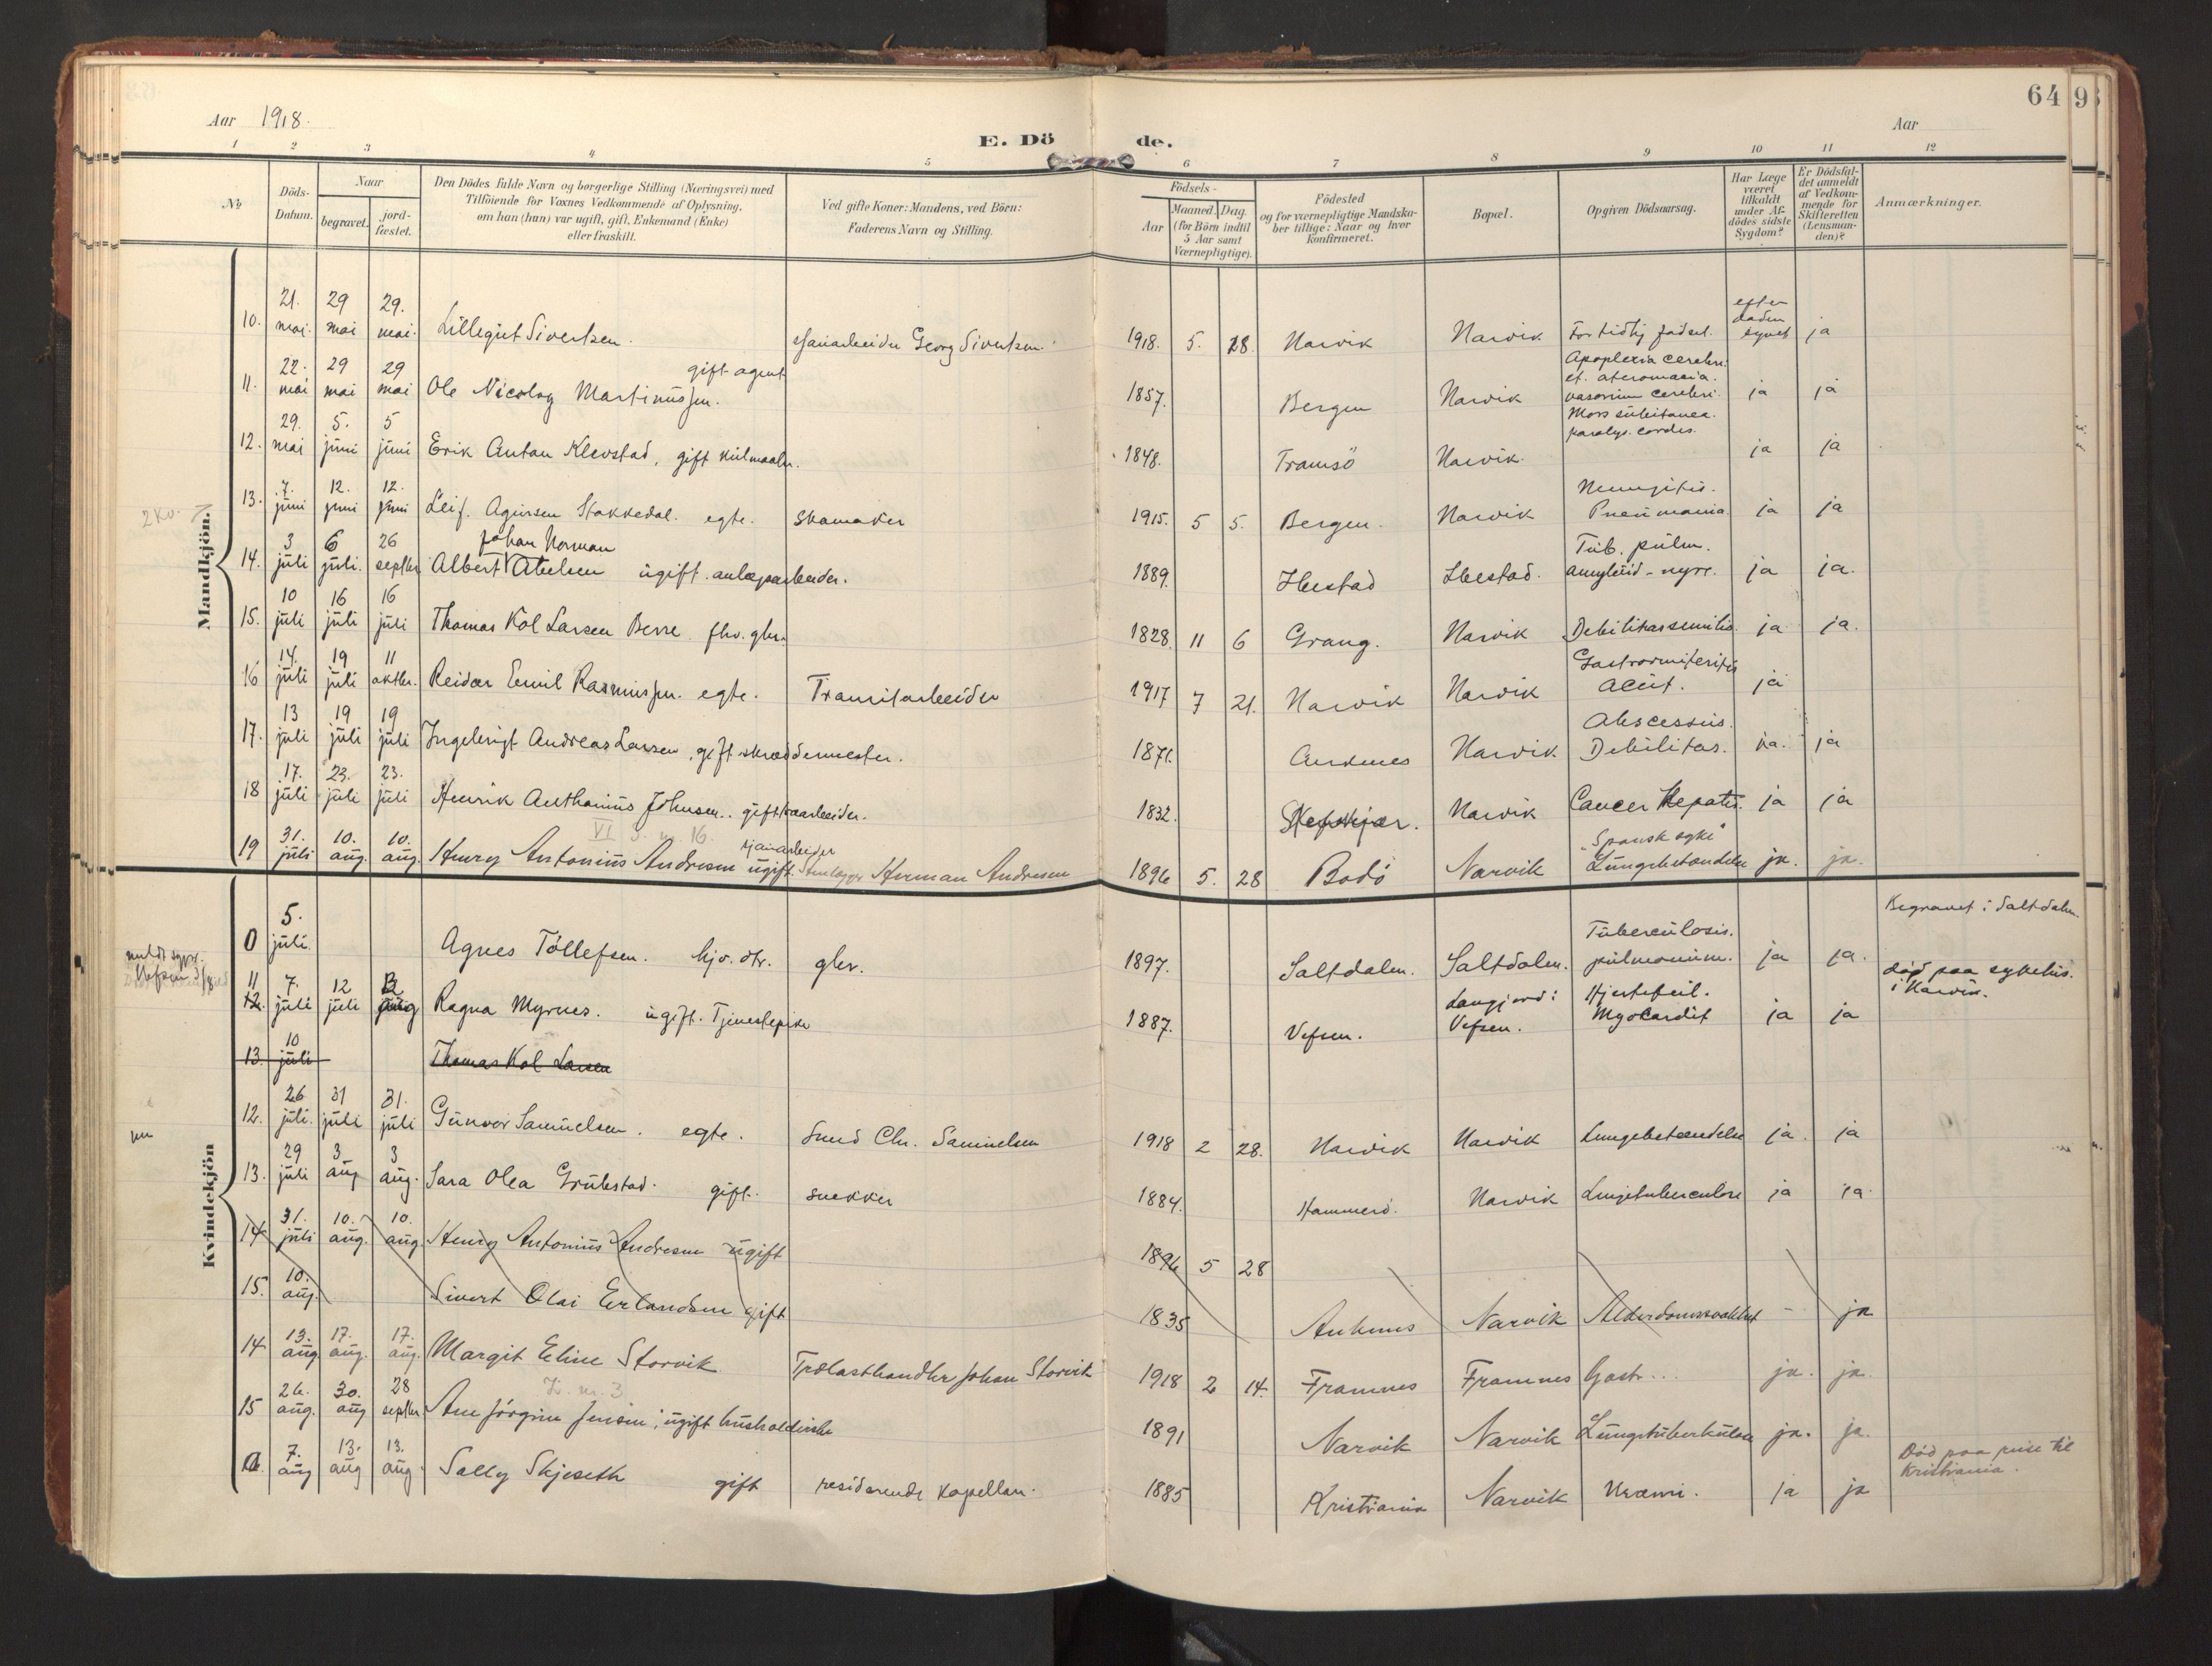 64
9
Aar 1918.
E. Dö de.
Aar
1 2 3 4 5 6 7 8 9 10 11 12
No
Döds-Datum.
Naar begravet. jordfæstet.
Den Dödes fulde Navn og borgerlige Stilling (Næringsvei) med
Tilföiende for Voxnes Vedkommende af Oplysning,
om han (hun) var ugift, gift, Enkemand (Enke)
eller fraskilt.
Ved gifte Koner: Mandens, ved Börn:
Faderens Navn og Stilling.
Födsels-
Aar
Maaned. Dag.
(for Börn indtil
5 Aar samt
Værnepligtige).
Födested
og for værnepligtige Mandska-
ber tillige: Naar og hvor
konfirmeret.
Bopæl.
Opgiven Dödsaarsag.
Har Læge
været
tilkaldt
under Af-
dödes sidste
Sygdom?
Er Dödsfal-
det anmeldt
af Vedkom-
mende for
Skifteretten
(Lensman-
den)?
Anmærkninger.
Mandkjön.
10. 21. mai. 29 mai 29. mai. Lillegut Sivertsen. Georg Sivertsen. 1918. 5. 28. Narvik Narvik For tidlig födsel. efter döden synet ja
11. 22. mai 29 mai 29 mai Ole Nicolay Martinussen. gift agent 1857. Bergen Narvik Apoplexia cerebri. et. ateromacia. vasorum cerebri. ja ja
12. 29. mai 5. juni 5 juni Erik Antan Klevstad, gift 1848. Tromsö Narvik. Mors subitanea. paralys. cordis. ja ja
2 kv.
13. 7. juni 12. juni 12. juni Leif. Stokkedal. egte. Skomaker 1915. 5 5. Bergen. Narvik Pneumonia. ja ja
14. 3 juli 6 juli. 26 septbr Albert Johan Norman ugift. anlægsarbeider. 1889. Ibestad Ibestad. Tub. pulm. amyloid-nyre. ja ja.
15. 10 juli 16 juli 16 juli Thomas Kol Larsen Berre. fhv. gbr. 1828. 11 6 Grang. Narvik Debilitas senilis. ja ja.
16 14. juli 19 juli 11 oktbr. Reidar Emil Rasmussen. egte. Transitarbeider 1917 7 21. Narvik Narvik Acut. ja
17. 13 juli 19 juli 19 juli Ingebrigt Andreas Larsen, gift skræddermester. 1871. Andenes Narvik Abscessus. Debilitas. ja. ja
18 17. juli 23. juli 23. juli Henrik Anthonius Johnsen.. gift 1832. Narvik Cancer Hepatis. ja ja
VI S. nr. 16.
19 31. juli 10. aug. 10. aug. Henry Antonius Andresen ugift. Herman Andresen 1896 5. 28 Bodö Narvik "Spansk syke" Lungebetændelse ja. ja.
Kvindekjön
0 5. juli. Agnes Tollefsen. hjv. dtr. gbr. 1897. Saltdalen. Saltdalen. Tuberculosis. pulmonum. ja ja. Begravet i Saltdalen.
11 12. 7. juli 12 juli Ragna Myrnes. ugift. Tjenestepike 1887. Vefsen. Vefsen. Hjertefeil. Myokardit ja ja död paa sykehus. i Narvik.
13. 10 juli Thomas Kol Larsen
12. 26 juli. 31 juli 31. juli Gunvor Samuelsen. egte. Smed Chr. Samuelsen 1918 2 28. Narvik Narvik Lungebetændelse ja. ja
13. 29 juli 3 aug 3 aug. Sara Olea Grubstad. gift. snekker 1884. Hammerö. Narvik Lungetuberculose ja ja.
14 31. juli 10. aug. 10. aug. Henry Antonius Andresen ugift 1896 5 28
15. 10. aug. Sivert Olai Erlandsen gift 1835 Ankenes Narvik Alderdomssvakhet - ja
14 13. aug 17. aug. 17. aug. Margit Eline Storvik Trælasthandler Johan Storvik 1918 2 14. Framnes Framnes Gastr... ja. ja.
15 26. aug. 30. aug 28 septbr. Ane Jörgine Jensen, ugift husholderske 1891 Narvik Narvik Lungetuberkulose ja. ja.
7. aug 13. aug 13. aug. Sally Skjeseth gift residerende kapellan. 1885 Kristiania Narvik Uræmi. ja ja Död paa reise til Kristiania.